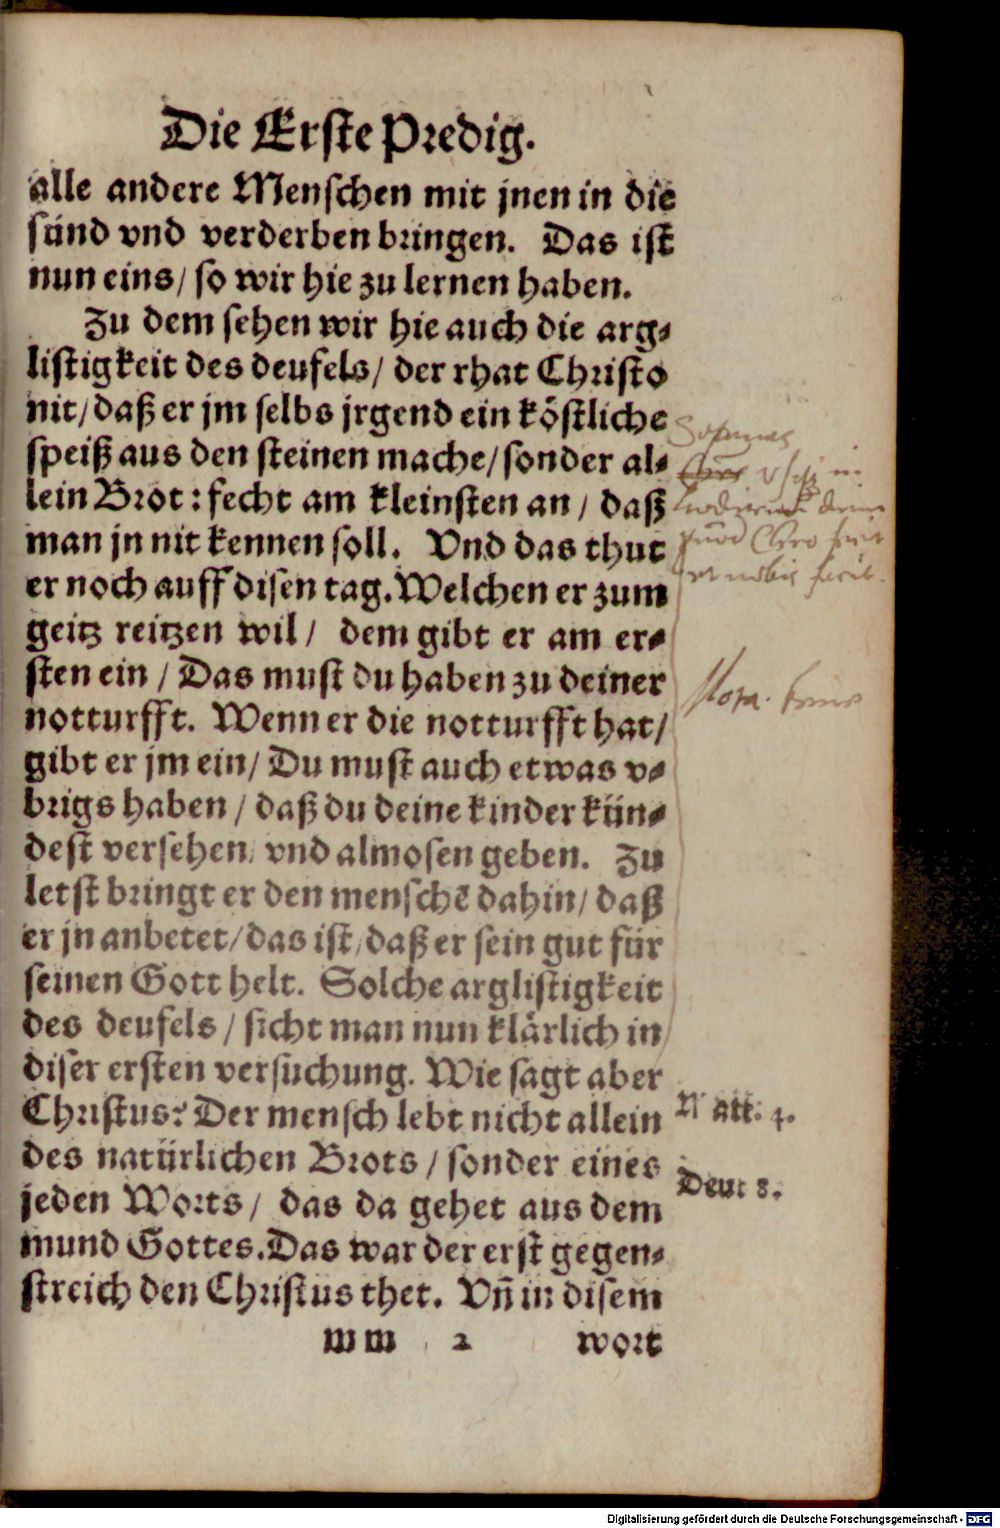 Die Erste Predig.
alle andere Menschen mit jnen in die
sünd vnd verderben bringen. Das ist
nun eins/ so wir hie zu lernen haben.
Zu dem sehen wir hie auch die arg⸗
listigkeit des deufels/ der rhat Christo
nit/ daß er jm selbs jrgend ein köstliche
speiß aus den steinen mache/ sonder al⸗
lein Brot: fecht am kleinsten an/ daß
man jn nit kennen soll. Vnd das thut
er noch auff disen tag. Welchen er zum
geitz reitzen wil/ dem gibt er am er⸗
sten ein/ Das must du haben zu deiner
notturfft. Wenn er die notturfft hat/
gibt er jm ein/ Du must auch etwas v⸗
brigs haben/ daß du deine kinder kün⸗
dest versehen, vnd almosen geben. Zu
letst bringt er den menschē dahin/ daß
er jn anbetet/ das ist/ daß er sein gut für
seinen Gott helt. Solche arglistigkeit
des deufels/ sicht man nun klärlich in
diser ersten versuchung. Wie sagt aber
Christus? Der mensch lebt nicht allein
Matt. 4.
des natürlichen Brots/ sonder eines
Deut 8.
jeden Worts/ das da gehet aus dem
mund Gottes. Das war der erst gegen⸗
streich den Christus thet. Vñ in disem
mm 2 wort
Digitalisierung gefördert durch die Deutsche Forschungsgemeinschaft - DFG